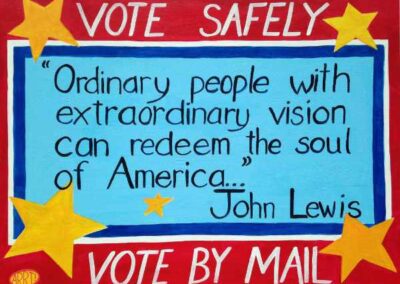 VOTE SAFELY
"Ordinary people with
extraordinary vision
can redeem the soul
of America..."
John Lewis
VOTE BY MAIL